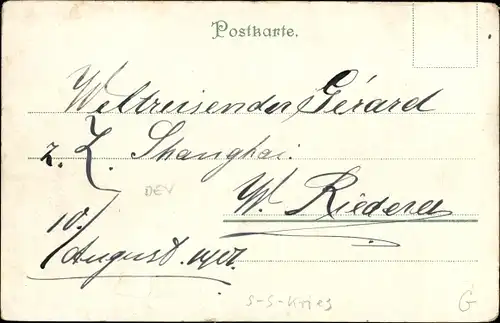 Postkarte.
Weltreisender Gérard
z. Z. Shanghai.
DEV
W. Riederer
10./
August 1907.
S-S-Krieg
G